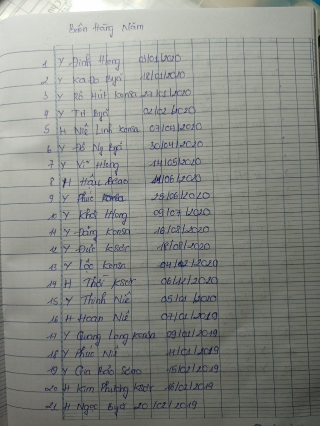 1 Y Đinh Hlong 03/01/2020
2 Y Ka Đo Byă 18/01/2020
3 Y Konsa 27/01/2020
4 Y Tri Byă 02/02/2020
5 H Niê Linh Konsa 07/03/2020
6 Y Đô Ny Byă 30/04/2020
7 Y Vĩ Hlong 14/05/2020
8 H Hân /06/2020
9 Y Phúc Konsa 25/06/2020
10 Y Khôi Hlong 09/07/2020
11 Y Đăng Konsa 16/08/2020
12 Y Đức Ksơr 18/08/2020
13 Y Lộc Konsa 04/12/2020
14 H Thơi Ksơr 06/12/2020
15 Y Thinh Niê 05/01/2020
16 H Hoan Niê 07/01/2019
17 Y Quang Long Ksơr 09/01/2019
18 Y Phúc Niê 11/01/2019
19 Y Gia Bảo 15/02/2019
20 H Kim Phương Ksơr 16/02/2019
21 H Ngọc Byă 20/02/2019